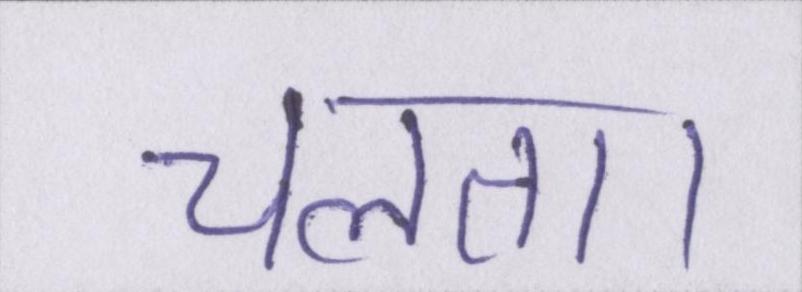 चलता।